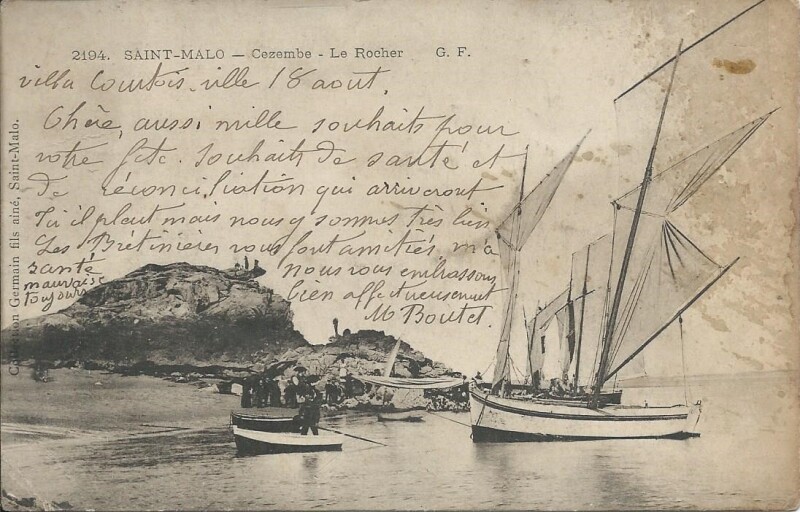 2194. SAINT-MALO — Cezembe - Le Rocher G. F.
villa Courtois. ville 18 aout.
Chère, aussi mille souhaits pour
votre fete. Souhaits de santé et
de réconciliation qui arriveront
il pleut mais nous y sommes très bien
Les Brétinières vous font amitiés, ma
santé
mauvaise
toujours
nous vous embrassons
bien affectueusement
M Boutet.
Collection Germain fils ainé, Saint-Malo.